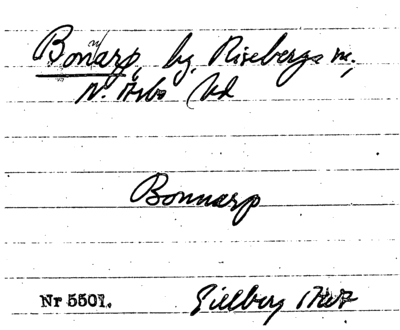 Bonnarp, by, Risebergs sn,
N. Åsbo hd
Bonnarp
Nr 5501. Gillberg 1767